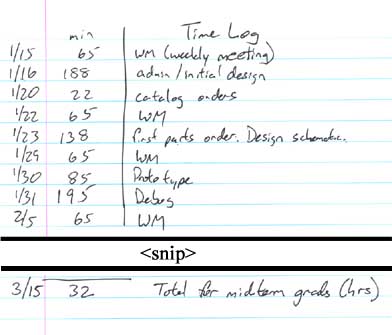 min Time Log
1/15 65 WM (weekly meeting)
1/16 188 admin/initial design
1/20 22 catalog orders
1/22 65 WM
1/23 138 first parts order. Design schematic.
1/29 65 WM
1/30 85 Prototype
1/31 195 Debug
2/5 65 WM
<snip>
3/15 32 Total for midterm grads (hrs)